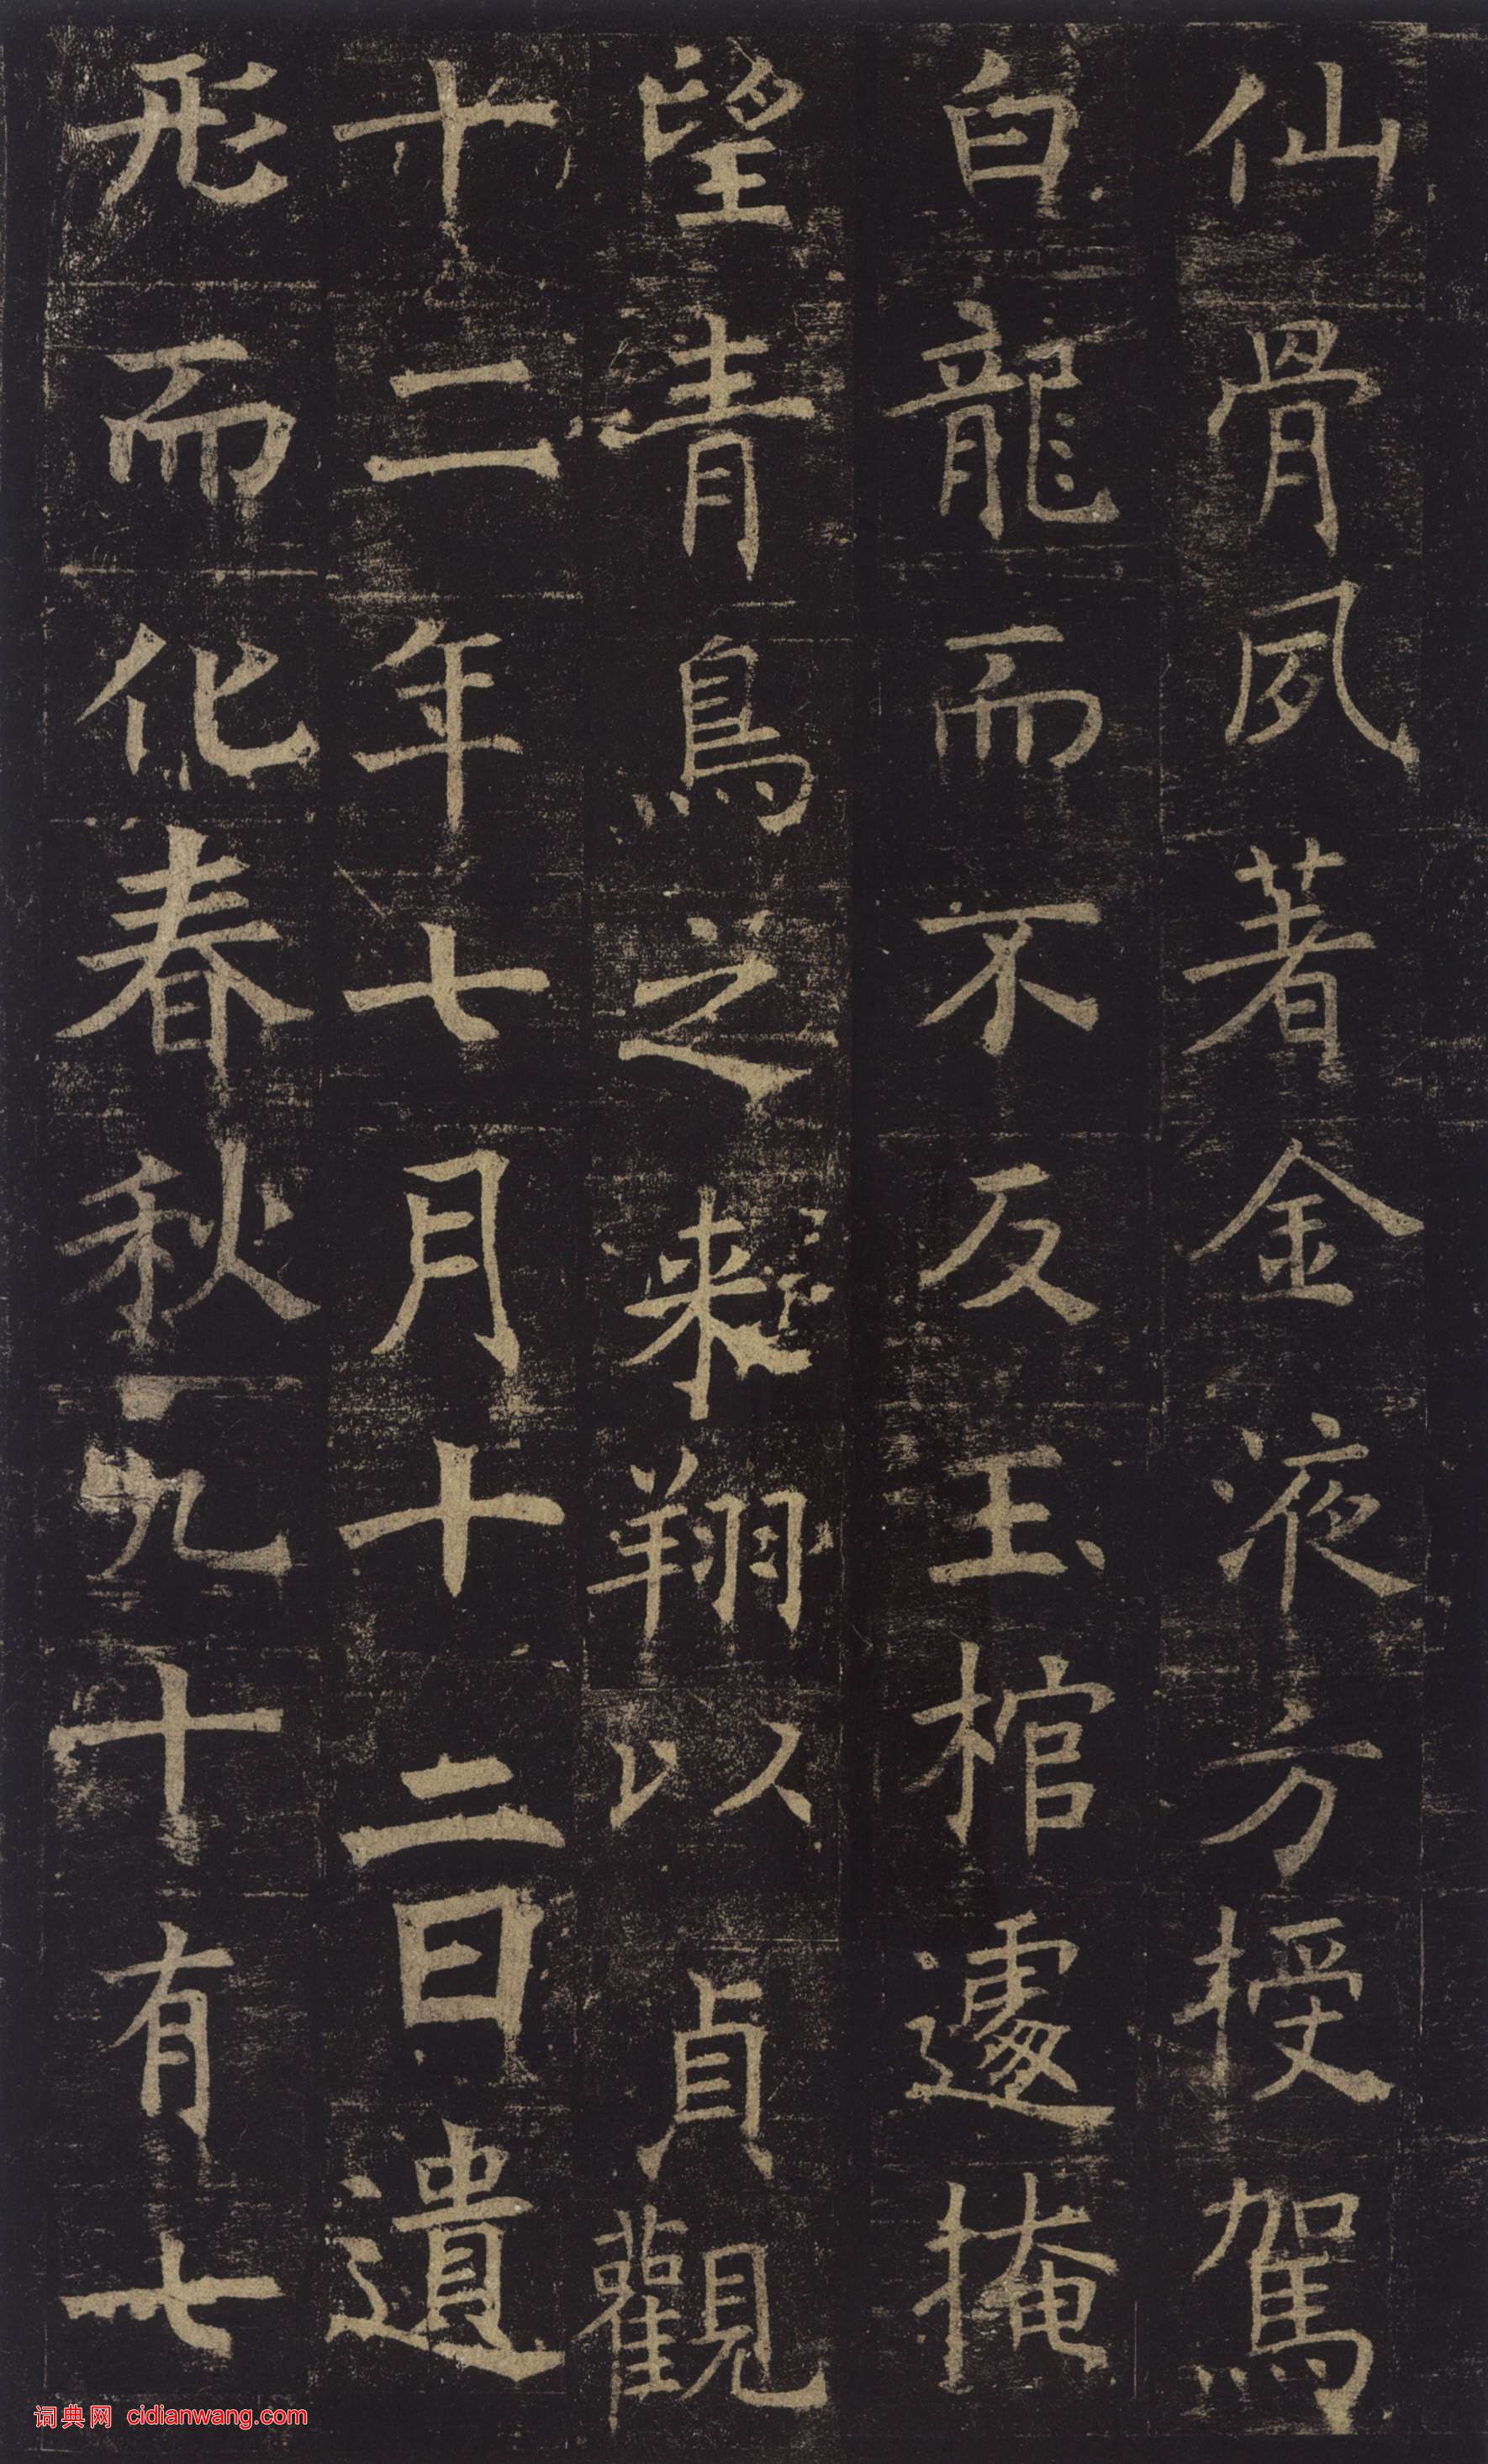 仙骨夙著金液方授駕
白龍而不反玉棺遽掩
望青鳥之来翔以貞觀
十二年七月十二日遺
形而化春秋九十有七
词典网 cidianwang.com